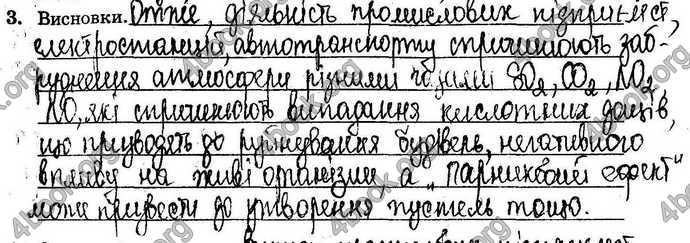 3. Висновки. Отже, діяльність промислових підприємств,
електростанцій, автотранспорту спричиняють заб-
руднення атмосфери різними газами SO2, CO2, NO2
NO, які спричинюють випадання кислотних дощів,
що призводять до руйнування будівель, негативного
впливу на живі організми а „парниковий ефект"
може призвести до утворення пустель тощо.